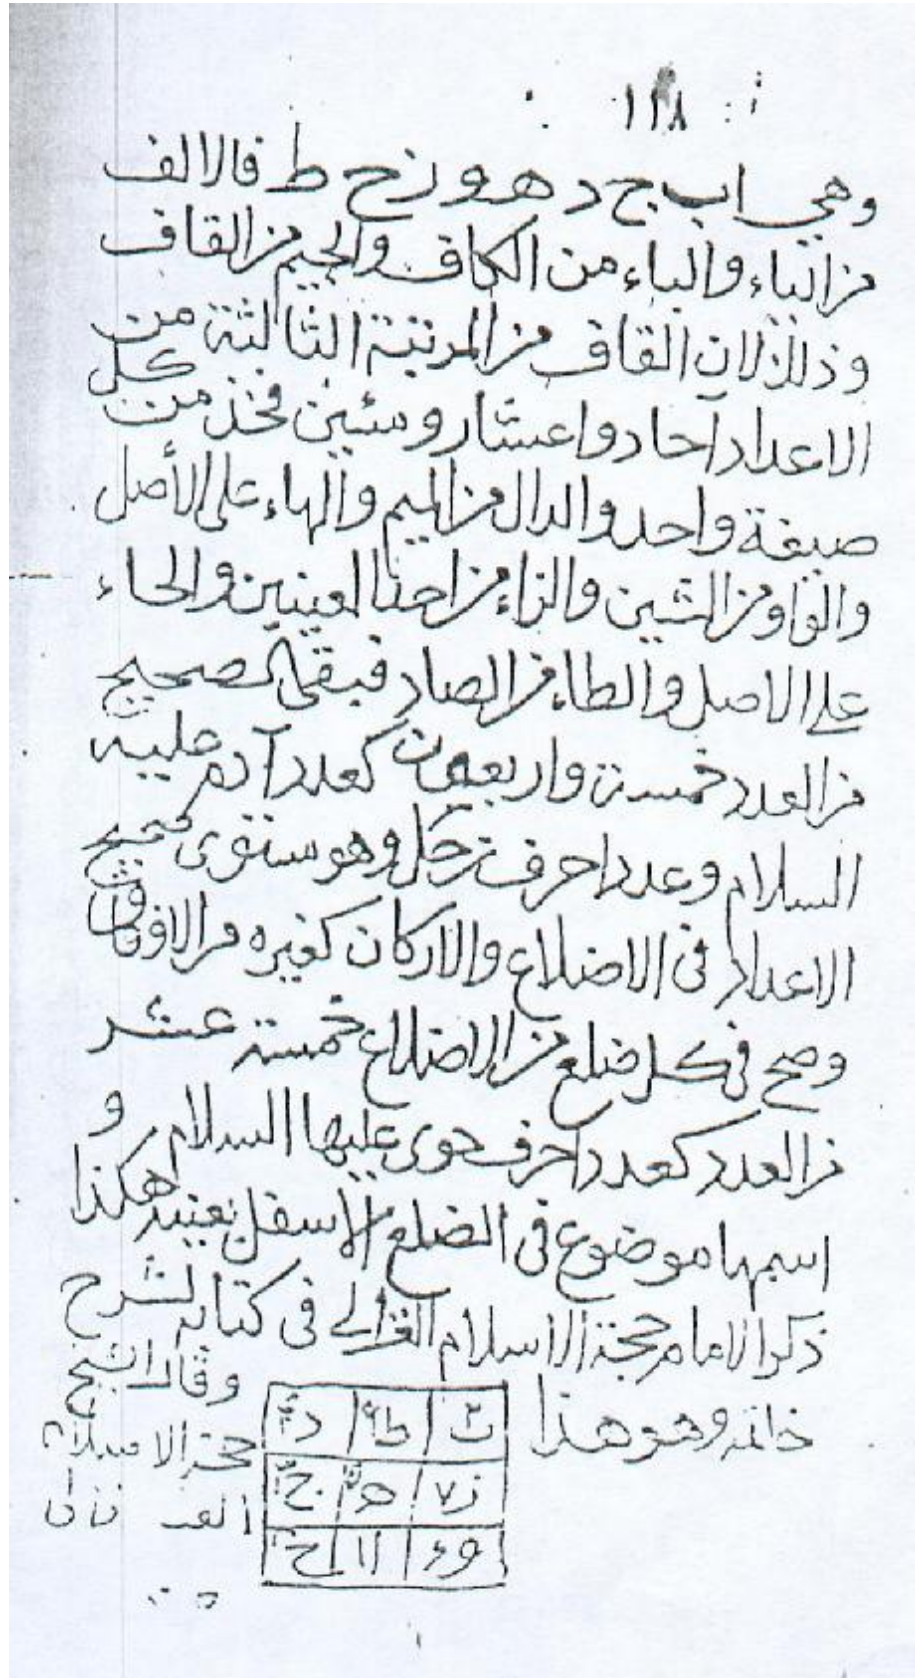 ١١٨
وهي اب ج د ه و ز ح ط فالالف
من الياء والباء من الكاف والجيم من القاف
وذلك لان القاف من المرتبة الثالثة من
الاعداد آحاد واعشار ومئين فخذ من كل
صيغة واحد والدال من الميم والهاء على الأصل
والواو من الشين والزاء من احنا العينين والحاء
على الاصل والطاء من الصاد فبقى الصحيح
من العدد خمسة واربعون كعدد آدم عليه
السلام وعدد احرف زحل وهو مستوى صحيح
الاعداد فى الاضلاع والاركان كغيره من الاوفاق
وصح فى كل ضلع من الاضلاع خمسة عشر
من العدد كعدد احرف حوى عليها السلام و
اسمها موضوع فى الضلع الاسفل بعينه هكذا
ذكر الامام حجة الاسلام الغزالى فى كتابه لشرح
خاتمه وهو هذا
ب٢ ط٩ د٤
ز٧ ه٥ ج٣
و٦ ا١ ح٨
وقال الشيخ
حجة الاسلام